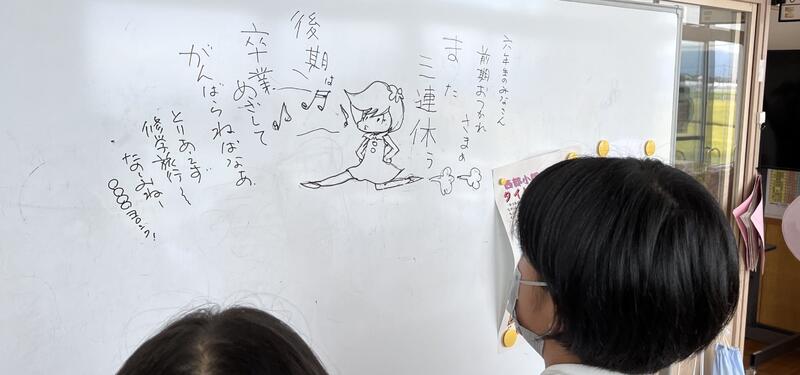 六年生のみなさん
前期おつかれ
さまの
また
三連休う
後期は
卒業めざして
がんばらねばなぁ
とりあえず
修学旅行〜
なーみねー
西部小
タイ